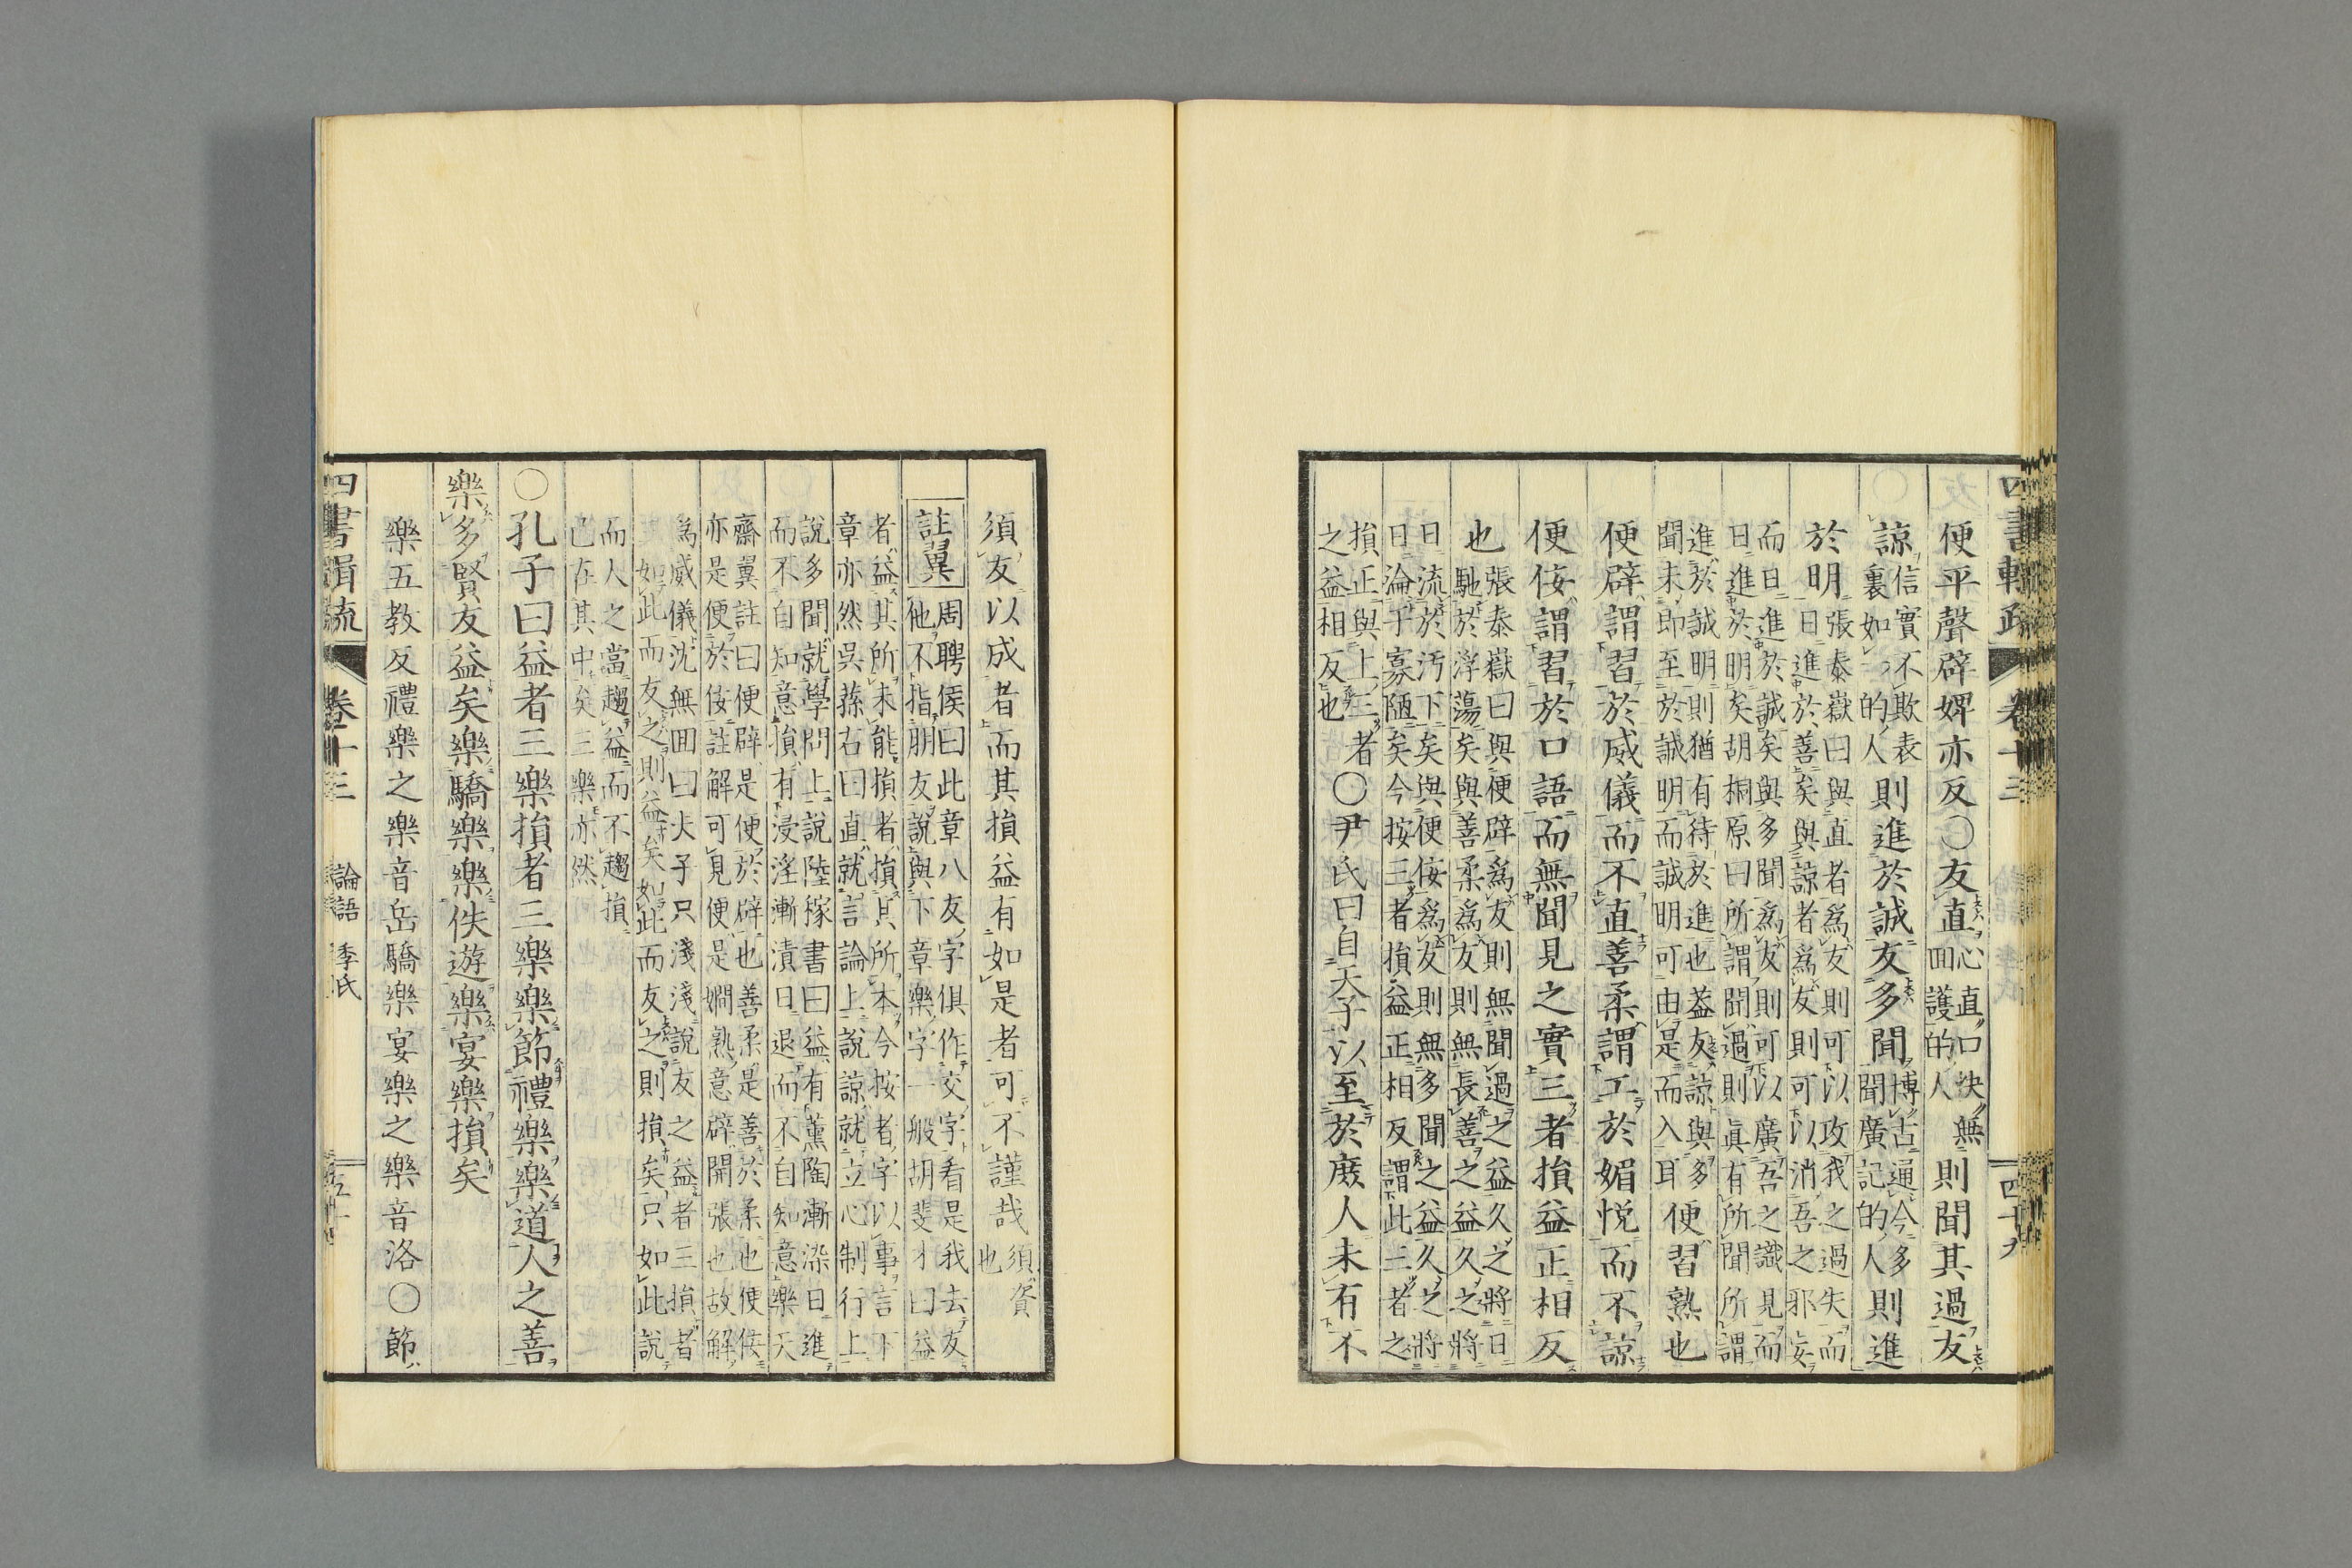 四書輯疏 卷十三 四十九
便平聲辟婢亦反〇友直心直口快無回護的人則聞其過友
諒信實不欺表裏如一的人則進於誠友多聞博古通今多聞廣記的人則進
於明張泰嶽曰與直者爲友則可以攻我之過失而
日進於善矣與諒者爲友則可以消吾之邪妄
而日進於誠矣與多聞爲友則可以廣吾之識見而
日進於明矣胡桐原曰所謂聞過則眞有所聞所謂
進於誠明則猶有待於進也葢友諒與多
聞未即至於誠明而誠明可由是而入耳便習熟也
便辟謂習於威儀而不直善柔謂工於媚悅而不諒
便佞謂習於口語而無聞見之實三者損益正相反
也張泰嶽曰與便辟爲友則無聞過之益久之將日
馳於浮蕩矣與善柔爲友則無長善之益久之將
日流於汚下矣與便佞爲友則無多聞之益久之將
日淪于寡陋矣今按三者損益正相反謂此三者之
損正與上三者
之益相反也〇尹氏曰自天子以至於庶人未有不
須友以成者而其損益有如是者可不謹哉須資也
註翼周聘侯曰此章八友字俱作交字看是我去友
他不指朋友說與下章樂字一般胡斐才曰益
者益其所未能損者損其所本今按者字以事言下
章亦然吳蓀右曰直就言論上說諒就立心制行上
說多聞就學問上說陸稼書曰益有薰陶漸染日進
而不自知意損有浸淫漸漬日退而不自知意樂天
齋翼註曰便辟是便於辟也善柔是善於柔也便佞
亦是便於佞註解可見便是嫺熟意辟開張也故解
爲威儀沈無回曰夫子只淺淺說友之益者三損者
三如此而友之則益矣如此而友之則損矣只如此說
而人之當趨益而不趨損
已在其中矣三樂亦然
〇孔子曰益者三樂損者三樂樂節禮樂樂道人之善
樂多賢友益矣樂驕樂樂佚遊樂宴樂損矣
樂五教反禮樂之樂音岳驕樂宴樂之樂音洛〇節
四書輯疏 卷十三 論語 季氏 五十